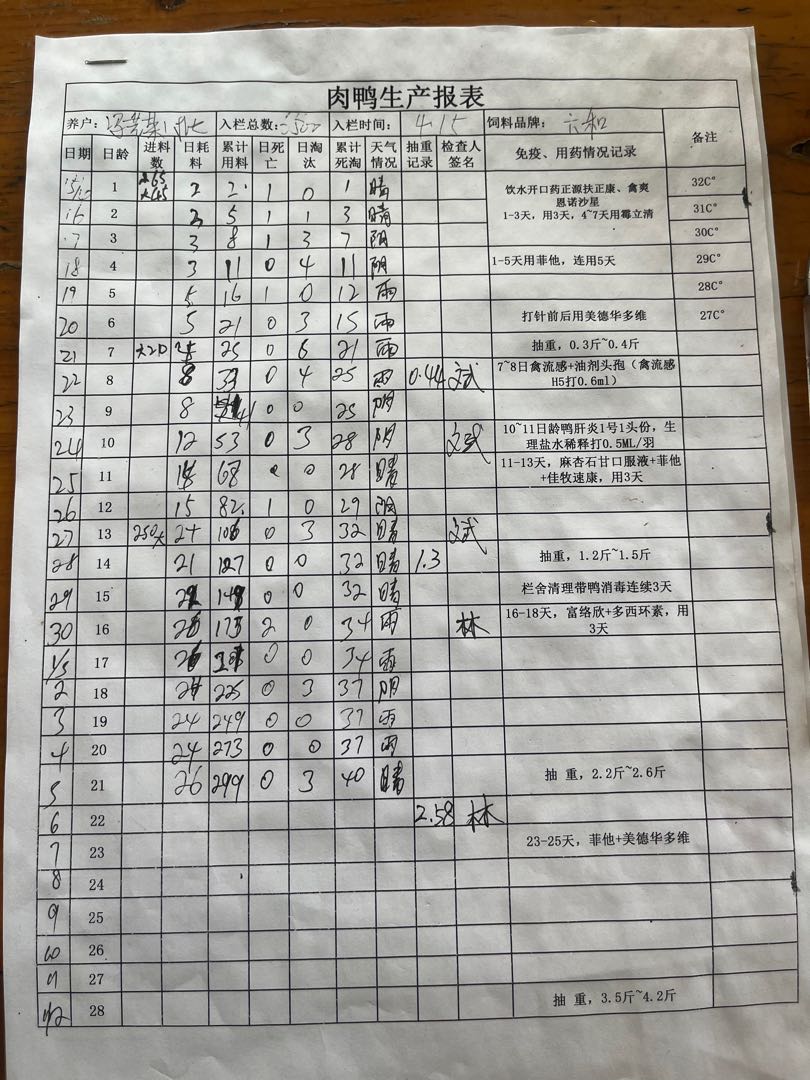 肉鸭生产报表
养户: 入栏总数: 入栏时间: 4.15 饲料品牌: 六和 备注
日期 日龄 进料数 日耗料 累计用料 日死亡 日淘汰 累计死淘 天气情况 抽重记录 检查人签名 免疫、用药情况记录
1 2 2 1 0 1 晴 饮水开口药正源扶正康、禽爽恩诺沙星 32C°
16 2 3 5 1 1 3 晴 1-3天，用3天，4~7天用霉立清 31C°
17 3 3 8 1 3 7 阴 30C°
18 4 3 11 0 4 11 阴 1-5天用菲他，连用5天 29C°
19 5 5 16 1 0 12 雨 28C°
20 6 5 21 0 3 15 雨 打针前后用美德华多维 27C°
21 7 25 0 6 21 雨 抽重，0.3斤~0.4斤
22 8 8 33 0 4 25 雨 0.44 文斌 7~8日禽流感+油剂头孢（禽流感H5打0.6ml）
23 9 8 41 0 0 25 阴
24 10 12 53 0 3 28 阴 文斌 10~11日龄鸭肝炎1号1头份，生理盐水稀释打0.5ML/羽
25 11 68 0 0 28 晴 11-13天，麻杏石甘口服液+菲他+佳牧速康，用3天
26 12 15 82 1 0 29 阴
27 13 250 24 106 0 3 32 晴 文斌
28 14 21 127 0 0 32 晴 1.3 抽重，1.2斤~1.5斤
29 15 0 0 32 晴 栏舍清理带鸭消毒连续3天
30 16 175 2 0 34 雨 林 16-18天，富络欣+多西环素，用3天
1/5 17 26 0 0 34 雨
2 18 24 225 0 3 37 阴
3 19 24 249 0 0 37 雨
4 20 24 273 0 0 37 雨
5 21 26 299 0 3 40 晴 抽 重，2.2斤~2.6斤
6 22 2.58 林
7 23 23-25天，菲他+美德华多维
8 24
9 25
10 26
11 27
12 28 抽 重，3.5斤~4.2斤